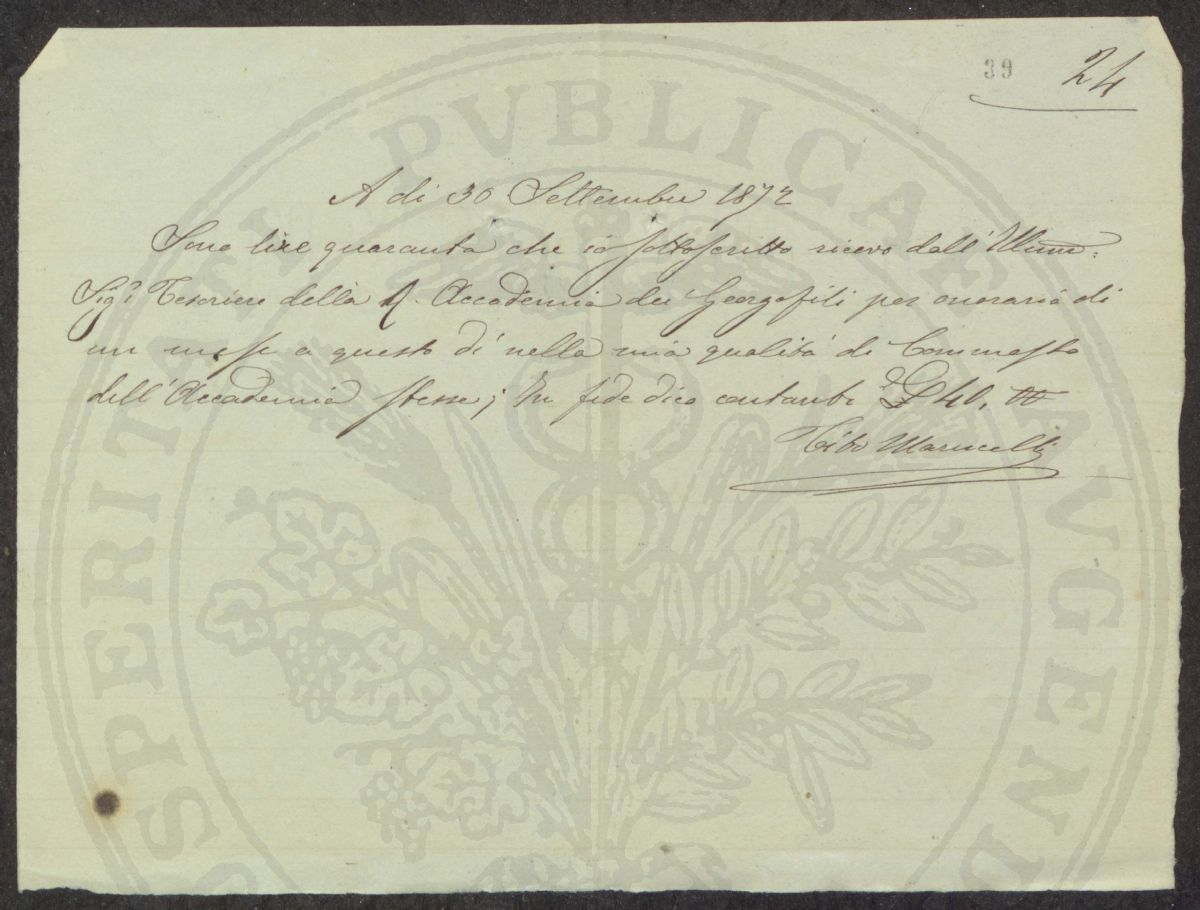 39 24
A dì 30 Settembre 1872
Sono lire quaranta che io sottoscritto ricevo dall' Illmo.
Sigr. Tesoriere della R. Accademia dei Georgofili per onorario di
un mese a questo dì nella mia qualità di Commesso
dell' Accademia stessa; In fede dico contanti £ 40,
Tito Marucelli
PROSPERITATI PVBLICAE AVGEND